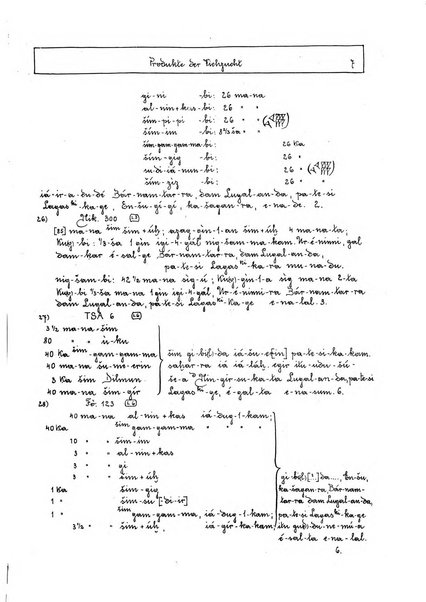 Produkte der Viehzucht 7
gi-ni -bi: 26 ma-na
al-nin+kas-bi: 26 " "
šim-pi-pi -bi: 26 " "
šim-im -bi: 8½ ša "
šim-gam-gam-ma-bi: 26 Ka
šim-gig -bi: 26 "
su-di-iá-nun-bi: 26 "
šim-ziz -bi: 26 "
iá-ir-a-du-dé Bár-nam-tar-ra, dam Lugal-an-da, pa-te-si
Lagas ki-ka-ge, En-šu-gi-gi, ka-šagan-ra, e-na-de. 2.
26) Nik. 300 L3
ma-na šim šim+úh; gin-1-an šim+úh 4 ma-na-ta;
-bi: ⅓-ša 1 gin igi-4-gál nig-šam-ma-kam. Ur-é-ninni, gal
dam-kar é-sal-ge Bár-nam-tar-ra, dam Lugal-an-da,
pa-te-si Lagas ki-ka-ra mu-na-du.
nig-šam-bi: 42½ ma-na sig-ú; gin-1-a sig ma-na-2-ta;
-bi ⅓-ša ma-na 1 gin igi-4-gál, Ur-é-ninni. Bár-nam-tar-ra
dam Lugal-an-da, pa-te-si Lagas-Ka-ge e-na-lal. 3.
27) TSA 6 L2
3½ ma-na šim
80 " ú-ku
40 Ka šim-gam-gam-ma
40 ma-na šu-ne-erin
3 Ka šim Dilmun
40 ma-na šim-gir
šim gi-bil-da iá-šu-ezin] pa-te-si-ka-kam.
sahar-ra iá-táh. egir itu-udu-šú-
še-a Nin-gir-su-ka-ta Lugal-an-da, pa-te-si
Lagas ki-ge, é-gal-ta e-na-sum. 6.
28) Fö. 123 L6
40 ma-na al-nin+kas iá-dug-1-kam;
40 Ka šim gam-gam-ma " " " "
10 " " šim-im
3 " " al-nin+kas
3 " " gi
3 " " šim+úh
1 Ka šim-gig
1 " šim-su [-di-ir]
1 " gam-gam-ma, iá-dug-1-kam;
3½ " " šim+úh, iá-gir-ka-kam;
gi-bil [.]-da...., En-šu,
ka-šagan-ra Bár-nam-
tar-ra dam Lugal-an-da,
pa-te-si Lagas ki-ka-ge
itu gud-du-ne-mú-a
é-sal-ta e-na-lal.
6.